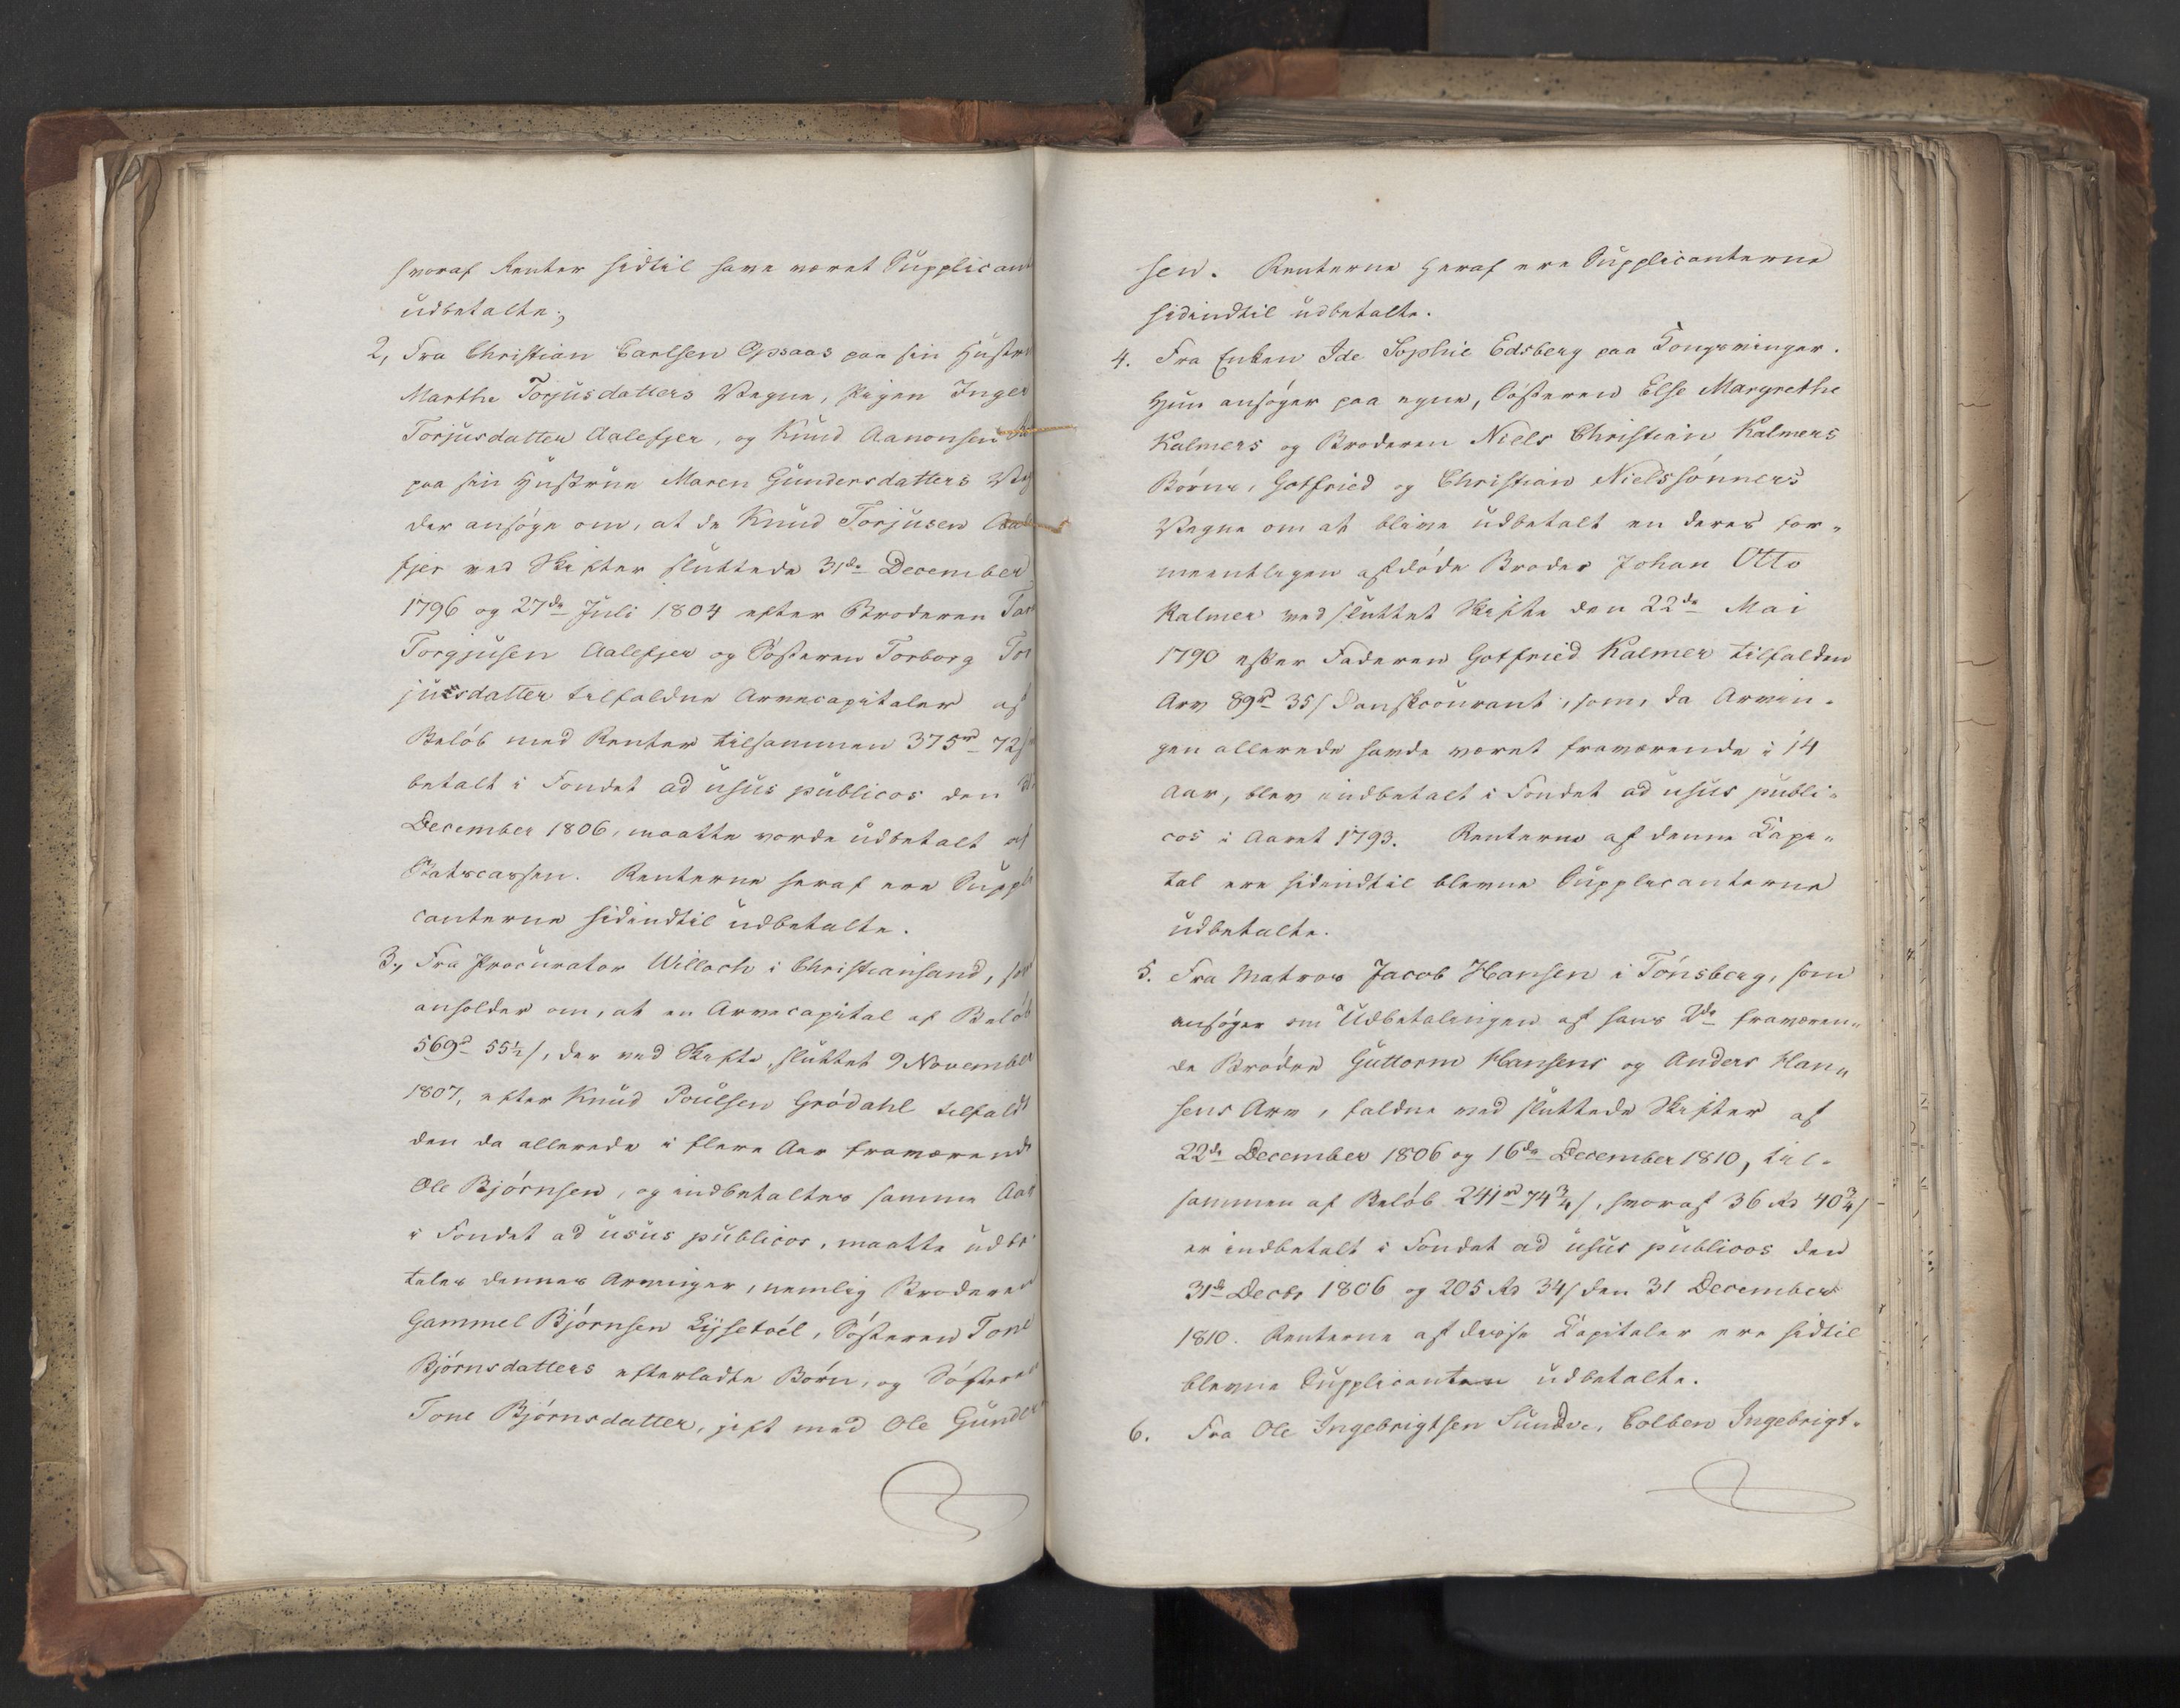 hvoraf Renter hidtil have været Supplican
udbetalte;
2, Fra Christian Carlsen Opsaas paa sin Hustru
Marthe Torjusdatters Vegne, Pigen Inger
Torjusdatter Aalefjer, og Knud Aanonsen
paa sin Hustrue Maren Gundersdatters Veg
der ansøge om, at de Knud Torjusen Aale
fjer ved Skifter sluttede 31de December
1796 og 27de Juli 1804 efter Broderen Tar
Torgjusen Aalefjer og Søsteren Torborg Tor
jusdatter tilfaldne Arvecapitaler af
Beløb med Renter tilsammen 375rd 72s
betalt i Fondet ad usus publicos den
December 1806, maatte vorde udbetalt af
Statscassen. Renterne heraf ere Suppli
canterne hidindtil udbetalte.
3, Fra Procurator Willoch i Christiansand, som
anholder om, at en Arvecapital af Beløb
569rd 55½s, der ved Skifte, sluttet 9 November
1807, efter Knud Poulsen Grødahl tilfaldt
den da allerede i flere Aar fraværende
Ole Bjørnsen, og indbetaltes samme Aar
i Fondet ad usus publicos, maatte udbe
tales dennes Arvinger, nemlig Broderen
Gammel Bjørnsen Lysetvél, Søsteren Tone
Bjørnsdatters efterladte Børn, og Søsteren
Tone Bjørnsdatter, gift med Ole Gunder
sen. Renterne heraf ere Supplicanterne
hidindtil udbetalte.
4. Fra Enken Ide Sophie Edsberg paa Kongsvinger.
Hun ansøger paa egne, Søsteren Else Margrethe
Kalmers og Broderen Niels Christian Kalmers
Børns, Gotfried og Christian Nielssønners
Vegne om at blive udbetalt en deres for-
meentligen afdøde Broder Johan Otto
Kalmer ved sluttet Skifte den 22de Mai
1790 efter Faderen Gotfried Kalmer tilfalden
Arv 89rd 35s danskcourant, som, da Arvin-
gen allerede havde været fraværende i 14
Aar, blev indbetalt i Fondet ad usus publi-
cos i Aaret 1793. Renterne af denne Capi-
tal ere hidindtil blevne Supplicanterne
udbetalte.
5. Fra Matros Jacob Hansen i Tønsberg, som
ansøger om Udbetalingen af hans 2de fraværen-
de Brødre Guttorm Hansens og Anders Han-
sens Arv, faldne ved sluttede Skifter af
22de December 1806 og 16de December 1810, til-
sammen af Beløb 241rd 74¾s, hvoraf 36 Rd 40¾s
er indbetalt i Fondet ad usus publicos den
31de Decbr 1806 og 205 Rd 34s den 31 December
1810. Renterne af disse Capitaler ere hidtil
blevne Supplicanten udbetalte.
6. Fra Ole Ingebrigtsen Sundve, Colben Ingebrigt-